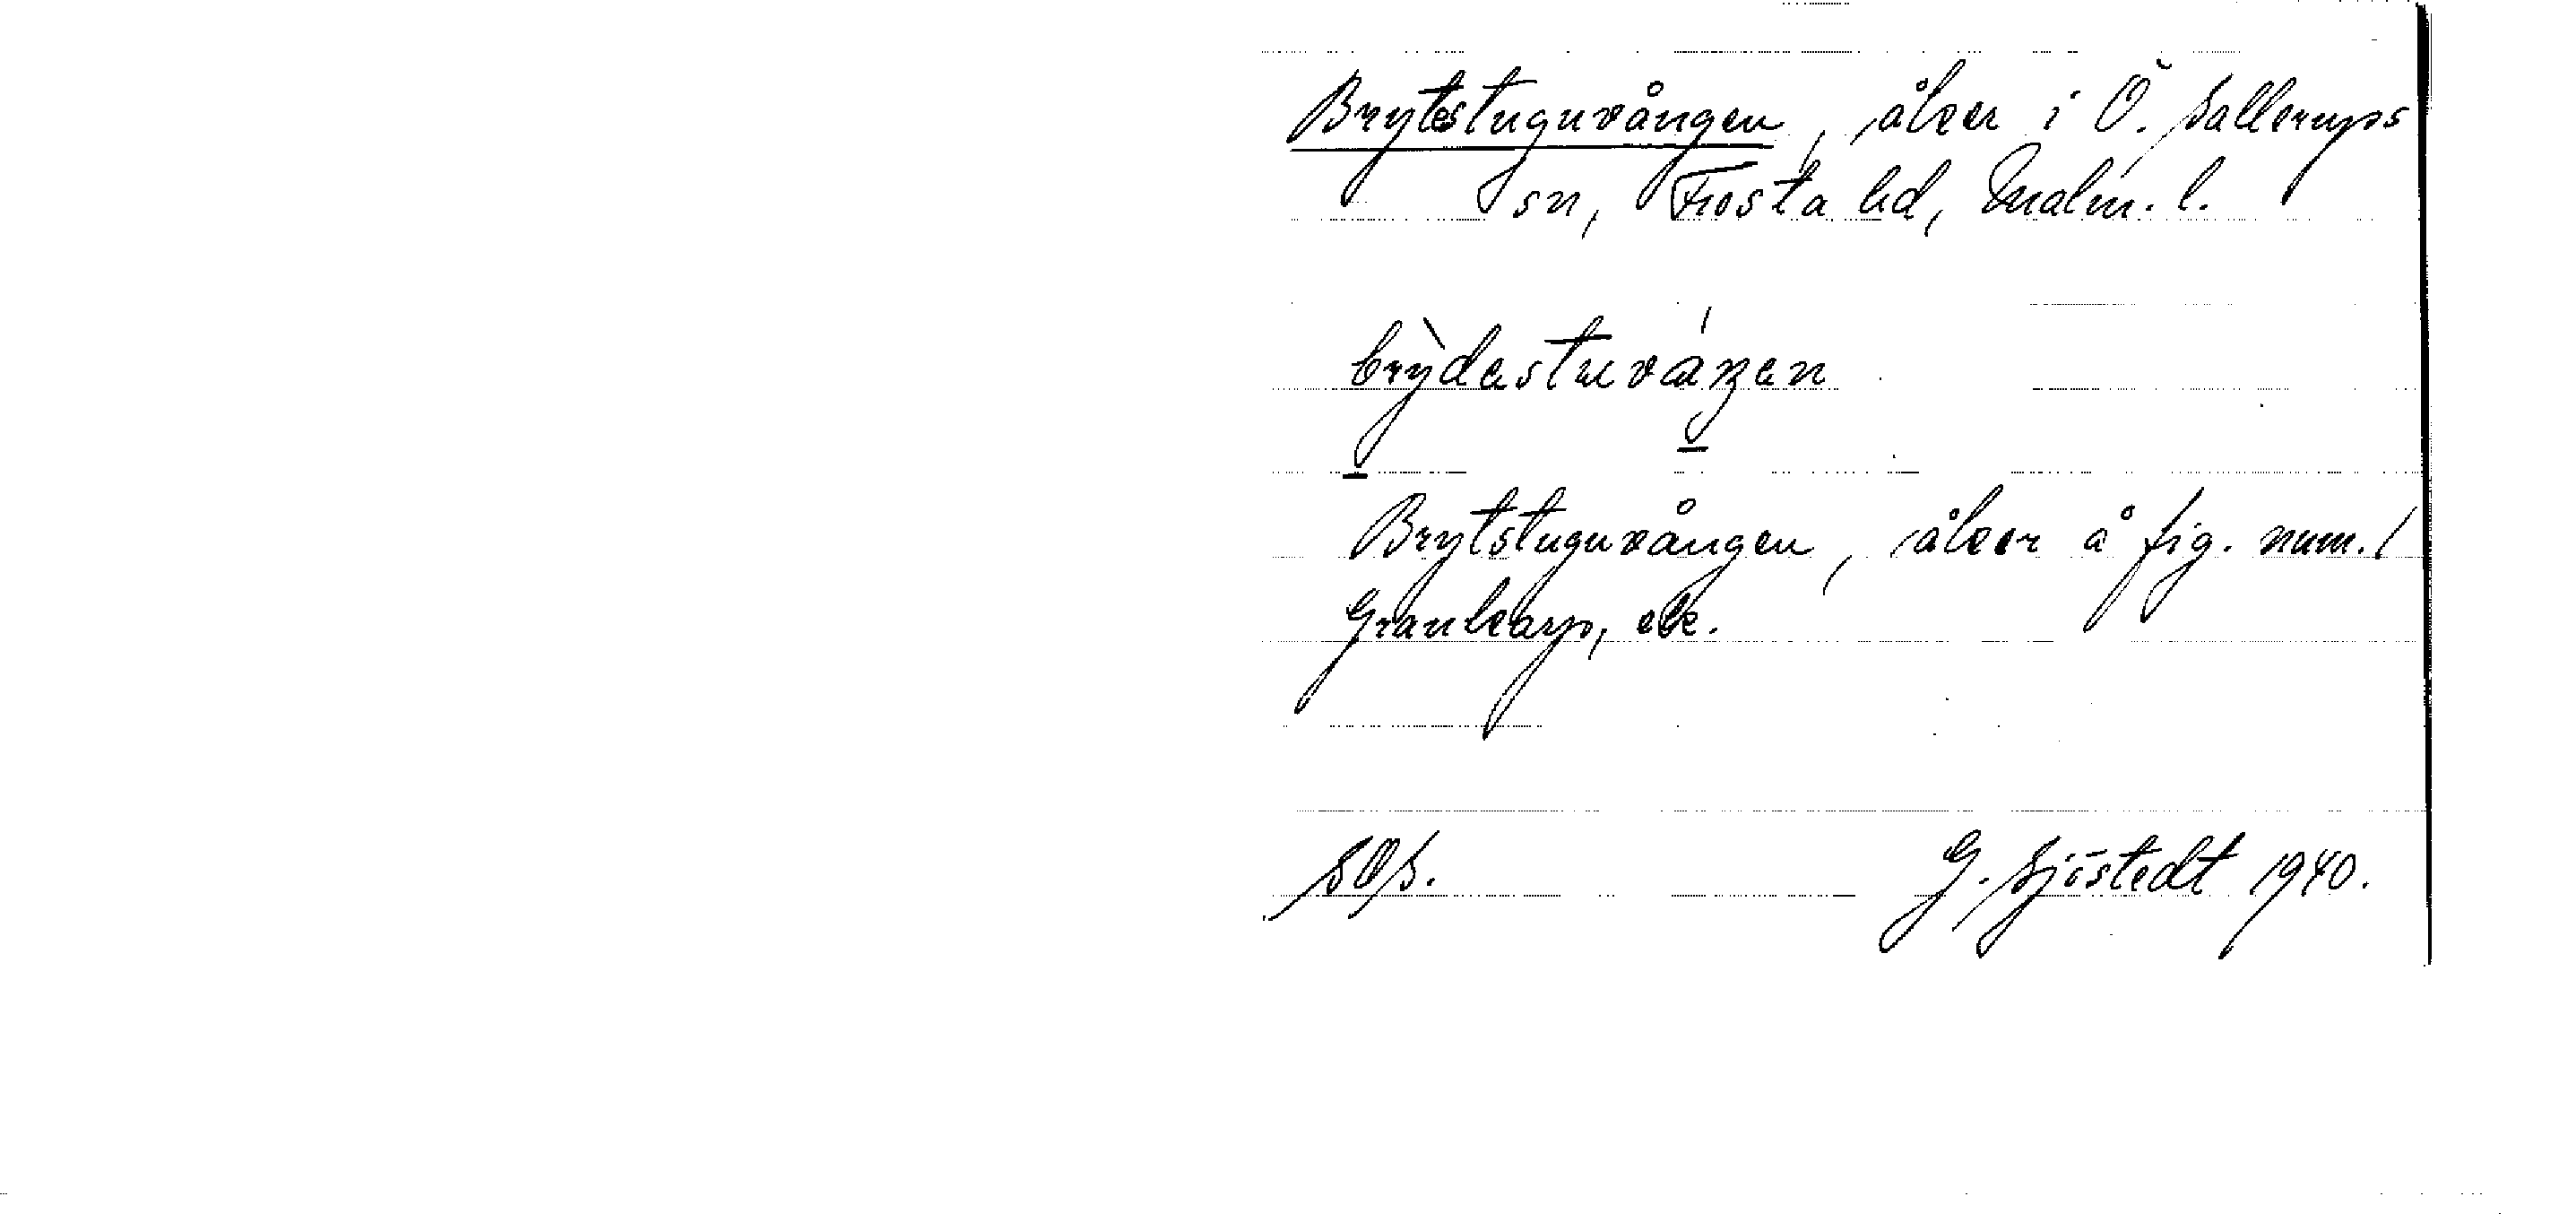 Brytestuguvången, åker i Ö. Sallerups
sn, Frosta hd, Malm. l.
brỳdestuváŋen
Brytstuguvången, åker å fig. num. 1
Grankarp, ek.
SOS.
G. Sjöstedt 1940.